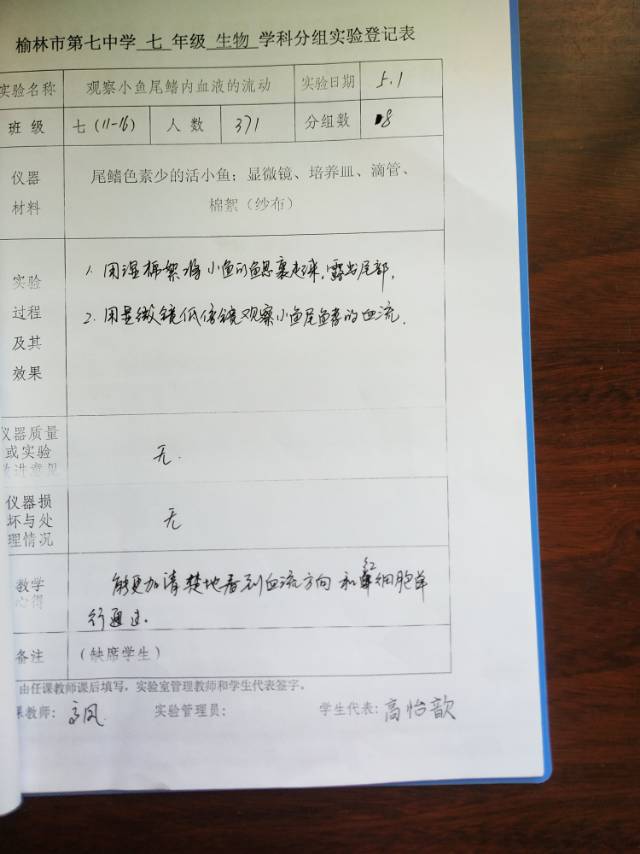 榆林市第七中学 七 年级 生物 学科分组实验登记表
实验名称 观察小鱼尾鳍内血液的流动 实验日期 5.1
班 级 七(11-16) 人 数 371 分组数 8
仪器 尾鳍色素少的活小鱼；显微镜、培养皿、滴管、
材料 棉絮（纱布）
实验 1. 用湿棉絮将小鱼的鳃裹起来,露出尾部,
过程 2. 用显微镜低倍镜观察小鱼尾鳍的血流.
及其
效果
仪器质量
或实验 无.
改进意见
仪器损
坏与处 无
理情况
教学 能更加清楚地看到血流方向和红细胞单
心得 行通过.
备注 （缺席学生）
由任课教师课后填写，实验室管理教师和学生代表签字。
课教师: 高凤 实验管理员: 学生代表: 高怡歆